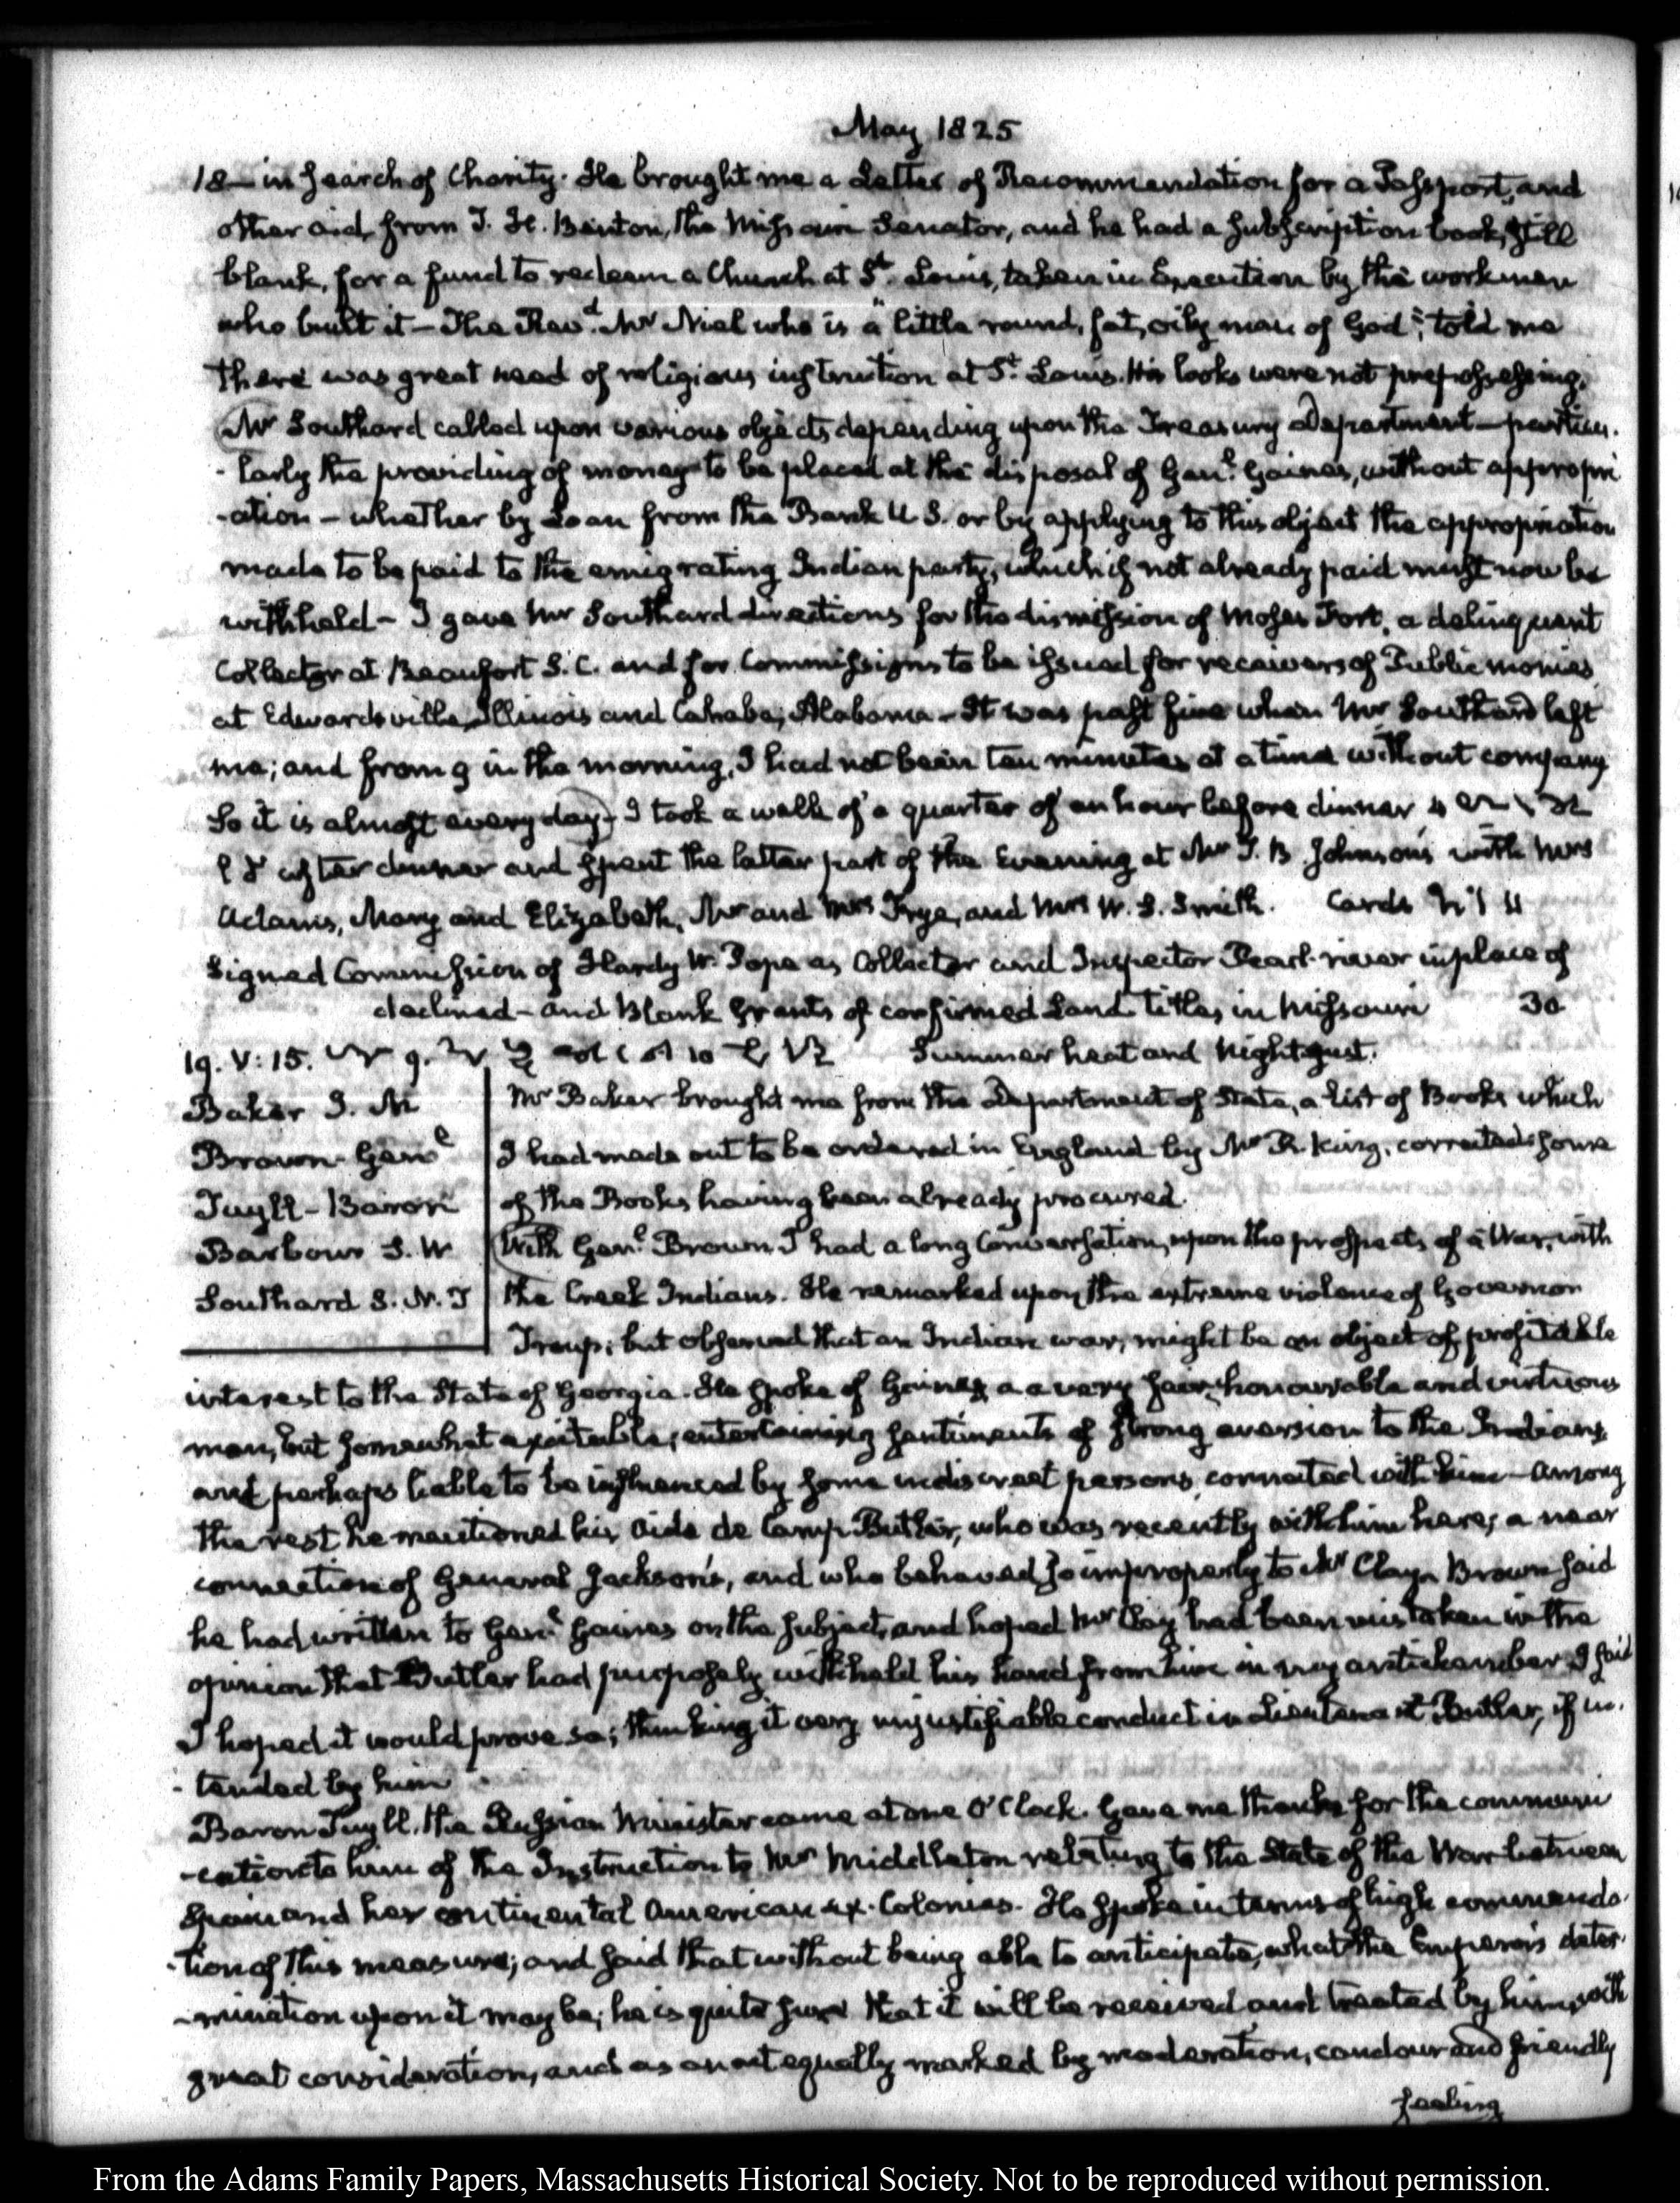 May 1825
18— in search of Charity. He brought me a Letter of Recommendation for a Passport, and
other aid, from T. H. Benton, the Missouri Senator, and he had a subscription book, still
blank, for a fund to redeem a Church at St. Louis, taken in Execution by the workmen
who built it — The Revd. Mr Nial who is a "little round, fat, oily man of God", told me
there was great need of religious instruction at St. Louis. His looks were not prepossessing.
Mr Southard called upon various objects depending upon the Treasury Department — particu-
-larly the providing of money to be placed at the disposal of Genl. Gaines, without appropri
-ation — whether by Loan from the Bank U S. or by applying to this object the appropriation
made to be paid to the emigrating Indian party, which if not already paid must now be
withheld — I gave Mr Southard directions for the dismission of Moses Fort, a delinquent
Collector at Beaufort S. C. and for Commissions to be issued for receivers of Public monies
at Edwardsville, Illinois and Cahaba, Alabama — It was past five when Mr Southard left
me; and from 9 in the morning, I had not been ten minutes at a time without company
So it is almost every day — I took a walk of a quarter of an hour before dinner
after dinner and spent the latter part of the Evening at Mr T. B Johnson's with Mrs
Adams, Mary and Elizabeth, Mr and Mrs Frye, and Mrs W. S. Smith. Cards
Signed Commission of Hardy W. Pope as Collector and Inspector Pearl-river in place of
declined — and Blank Grants of confirmed Land titles in Missouri 30
19. V: 15. Summer heat and Night gust.
Baker J. M
Brown Genl
Tuyll - Baron
Barbour S. W
Southard S. N. T
Mr Baker brought me from the Department of State, a list of Books which
I had made out to be ordered in England by Mr R. King, corrected some
of the Books having been already procured.
With Genl. Brown I had a long Conversation, upon the prospects of a War, with
the Creek Indians. He remarked upon the extreme violence of Governor
Troup; but observed that an Indian war, might be an object of profitable
interest to the State of Georgia. He spoke of Gaines as a very fair, honourable and virtuous
man, but somewhat excitable; entertaining sentiments of strong aversion to the Indians,
and perhaps liable to be influenced by some indiscreet persons, connected with him — Among
the rest he mentioned his Aide de Camp Butler, who was recently with him here; a near
connection of General Jackson's, and who behaved so improperly to Mr Clay. Brown said
he had written to Genl. Gaines on the subject, and hoped Mr Clay had been mistaken in the
opinion that Butler had purposely withheld his hand from him in my antichamber. I said
I hoped it would prove so; thinking it very unjustifiable conduct in Lieutenant Butler, if in-
-tended by him
Baron Tuyll, the Russian Minister came at one O'Clock. Gave me thanks for the communi
-cation to him of the Instruction to Mr Middleton relating to the State of the War between
Spain and her continental American ex-Colonies. He spoke in terms of high commenda-
-tion of this measure; and said that without being able to anticipate, what the Emperor's deter-
-mination upon it may be; he is quite sure that it will be received and treated by him, with
great consideration, and as an act equally marked by moderation, candour and friendly
feeling
From the Adams Family Papers, Massachusetts Historical Society. Not to be reproduced without permission.